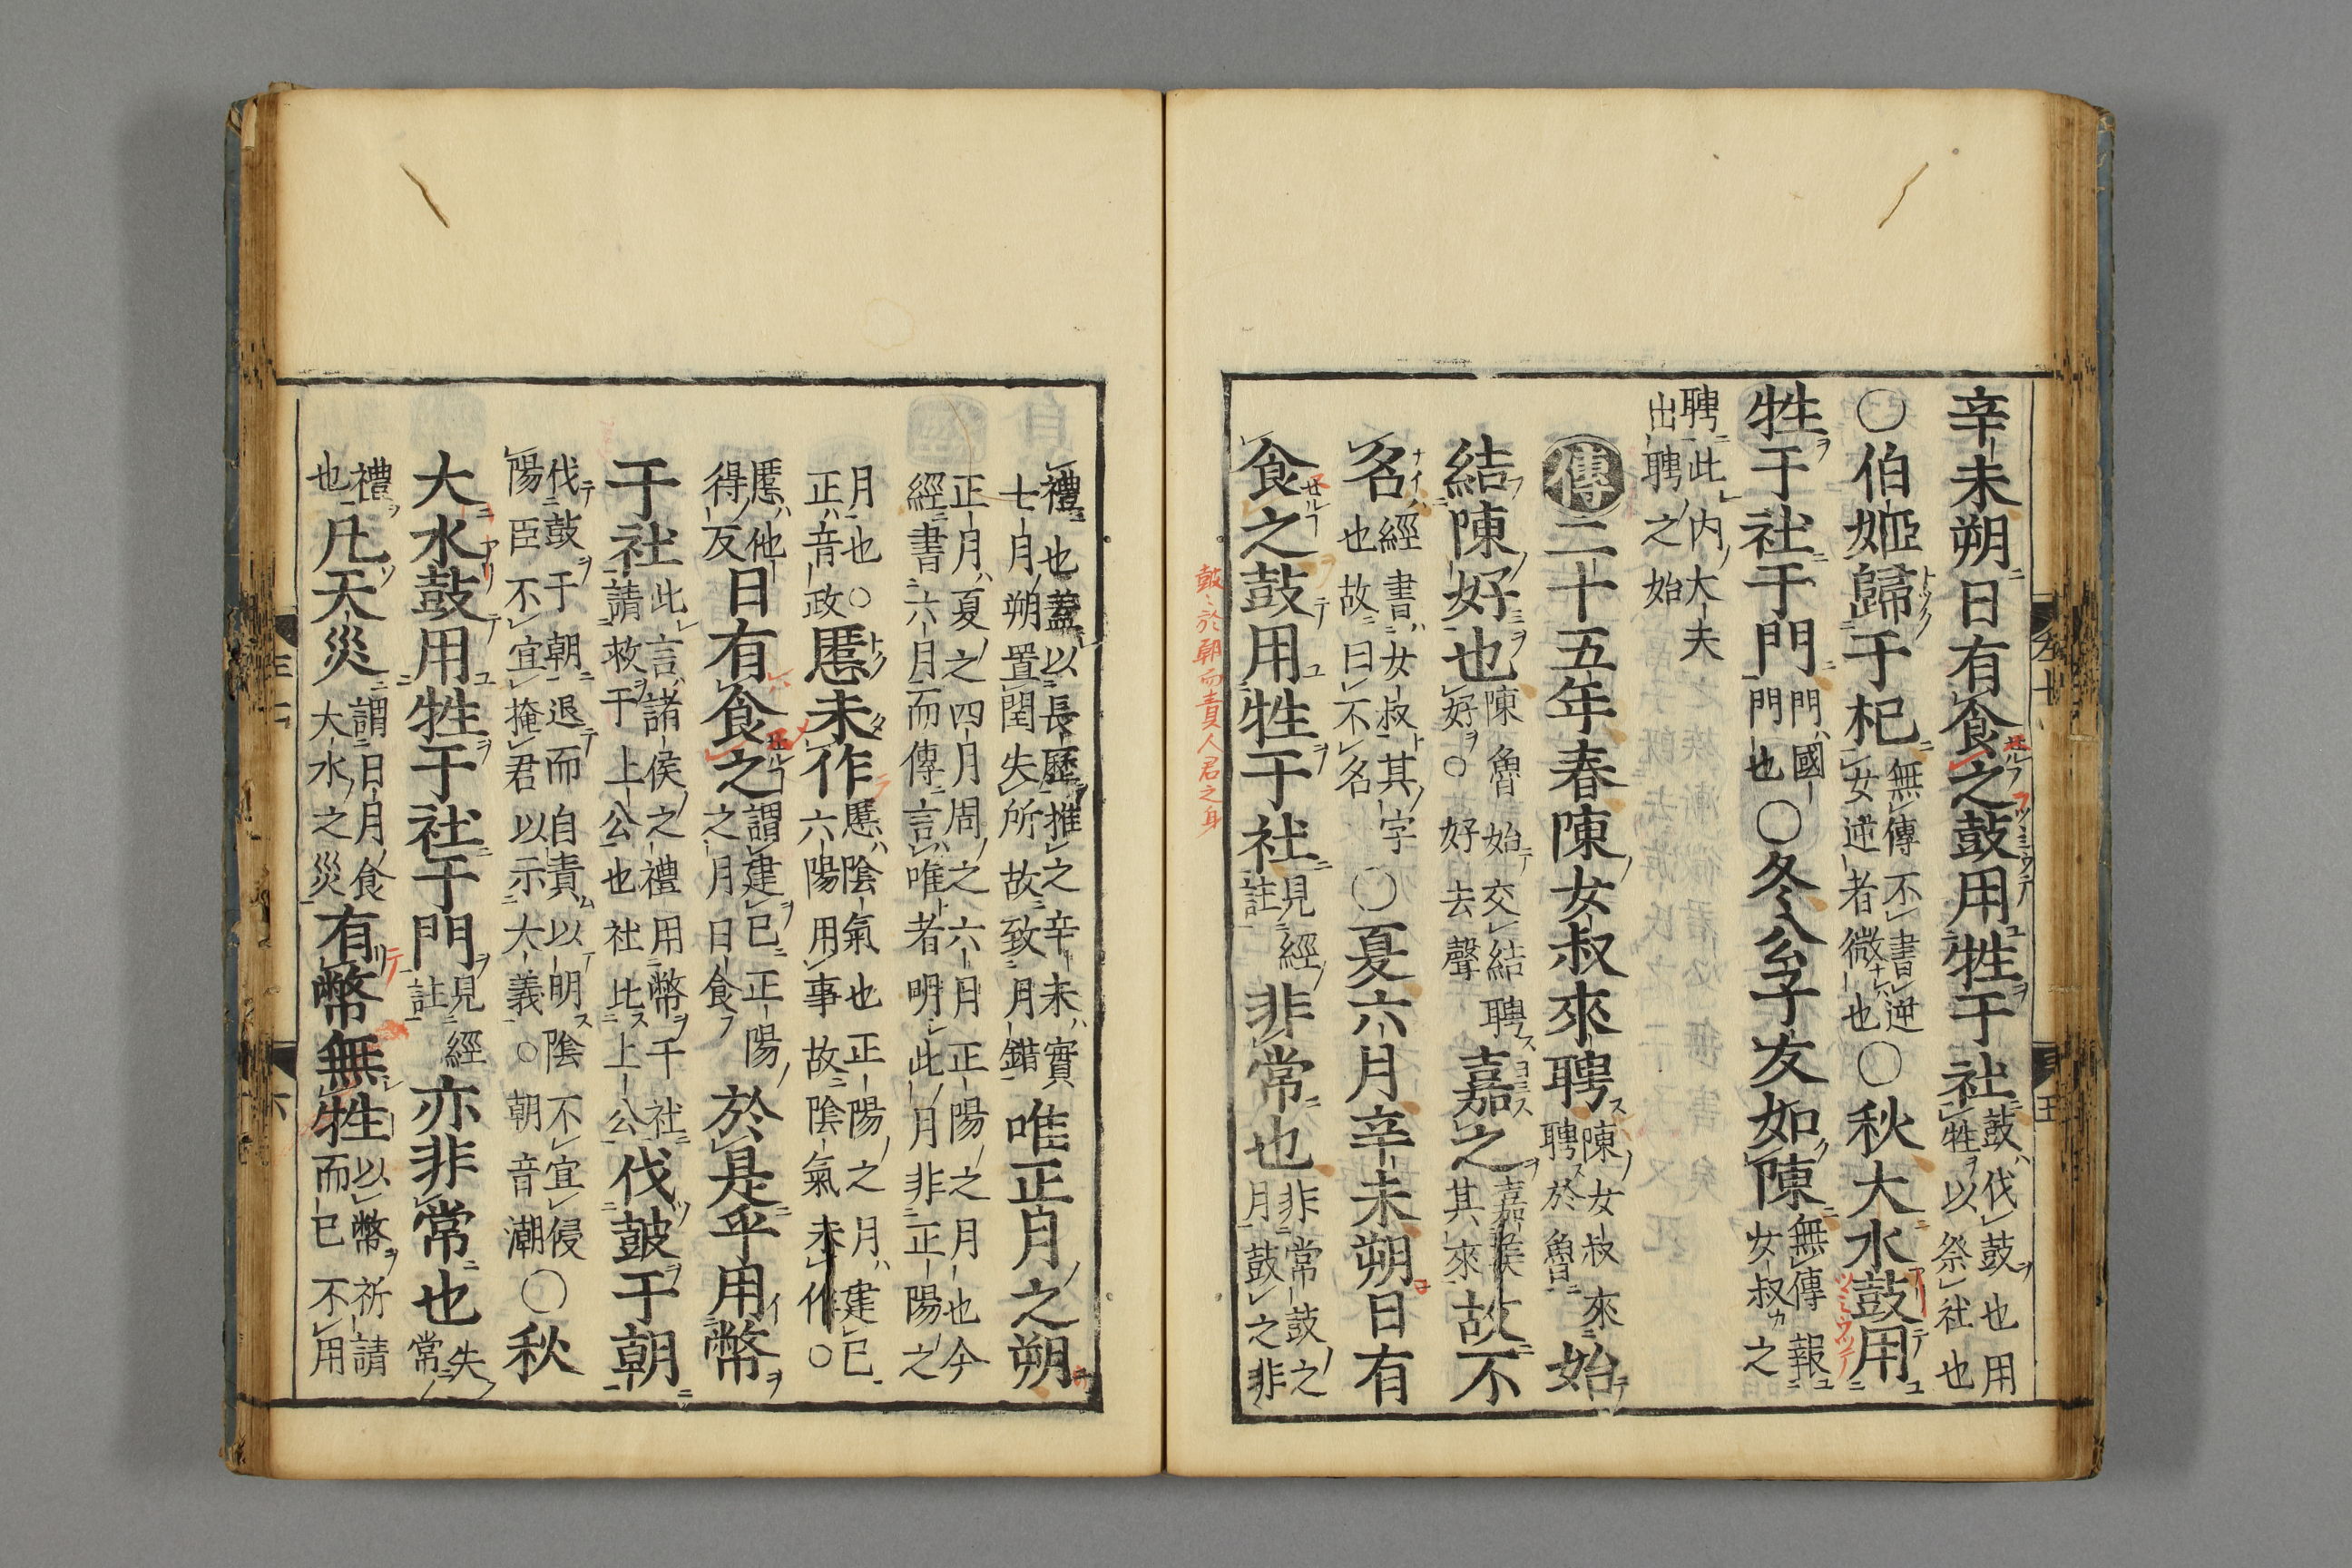 辛未朔日有食之鼓用牲于社鼓伐鼓也用牲以祭社也
○伯姬歸于杞無傳不書逆女逆者微也○秋大水鼓用
牲于社于門門國門也○冬公子友如陳無傳報女叔之
聘此内大夫出聘之始
傳二十五年春陳女叔來聘陳女叔來聘於魯始
結陳好也陳魯始交結好○好去聲聘嘉之嘉其來故不
名經書女叔其字也故曰不名○夏六月辛未朔日有
食之鼓用牲于社見經註非常也非常鼓之月鼓之非
鼓〻於朝而責人君之身
禮也蓋以長歷推之辛未實七月朔置閏失所故致月錯唯正月之朔
正月夏之四月周之六月正陽之月也今經書六月而傳言唯者明此月非正陽之
月也○正音政慝未作慝陰氣也正陽之月建巳六陽用事故陰氣未作○
慝他得反日有食之謂建巳正陽之月日食於是乎用幣
于社此言諸侯之禮用幣于社請救于上公也社比上公伐鼓于朝
伐鼓于朝退而自責以明陰不宜侵陽臣不宜掩君以示大義○朝音潮○秋
大水鼓用牲于社于門見經註亦非常也失常
禮也凡天災謂日月食大水之災有幣無牲以幣祈請而已不用